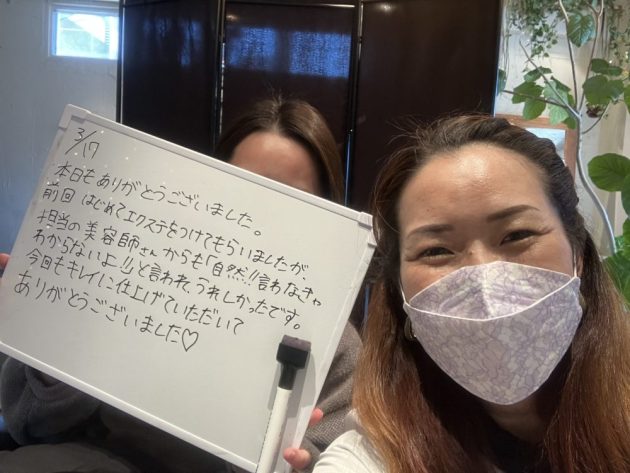 3/17
本日もありがとうございました。
前回 はじめてエクステをつけてもらいましたが、
担当の美容師さんからも「自然!!言わなきゃ
わからないよ!!」と言われて、うれしかったです。
今日もキレイに仕上げていただいて
ありがとうございました♡